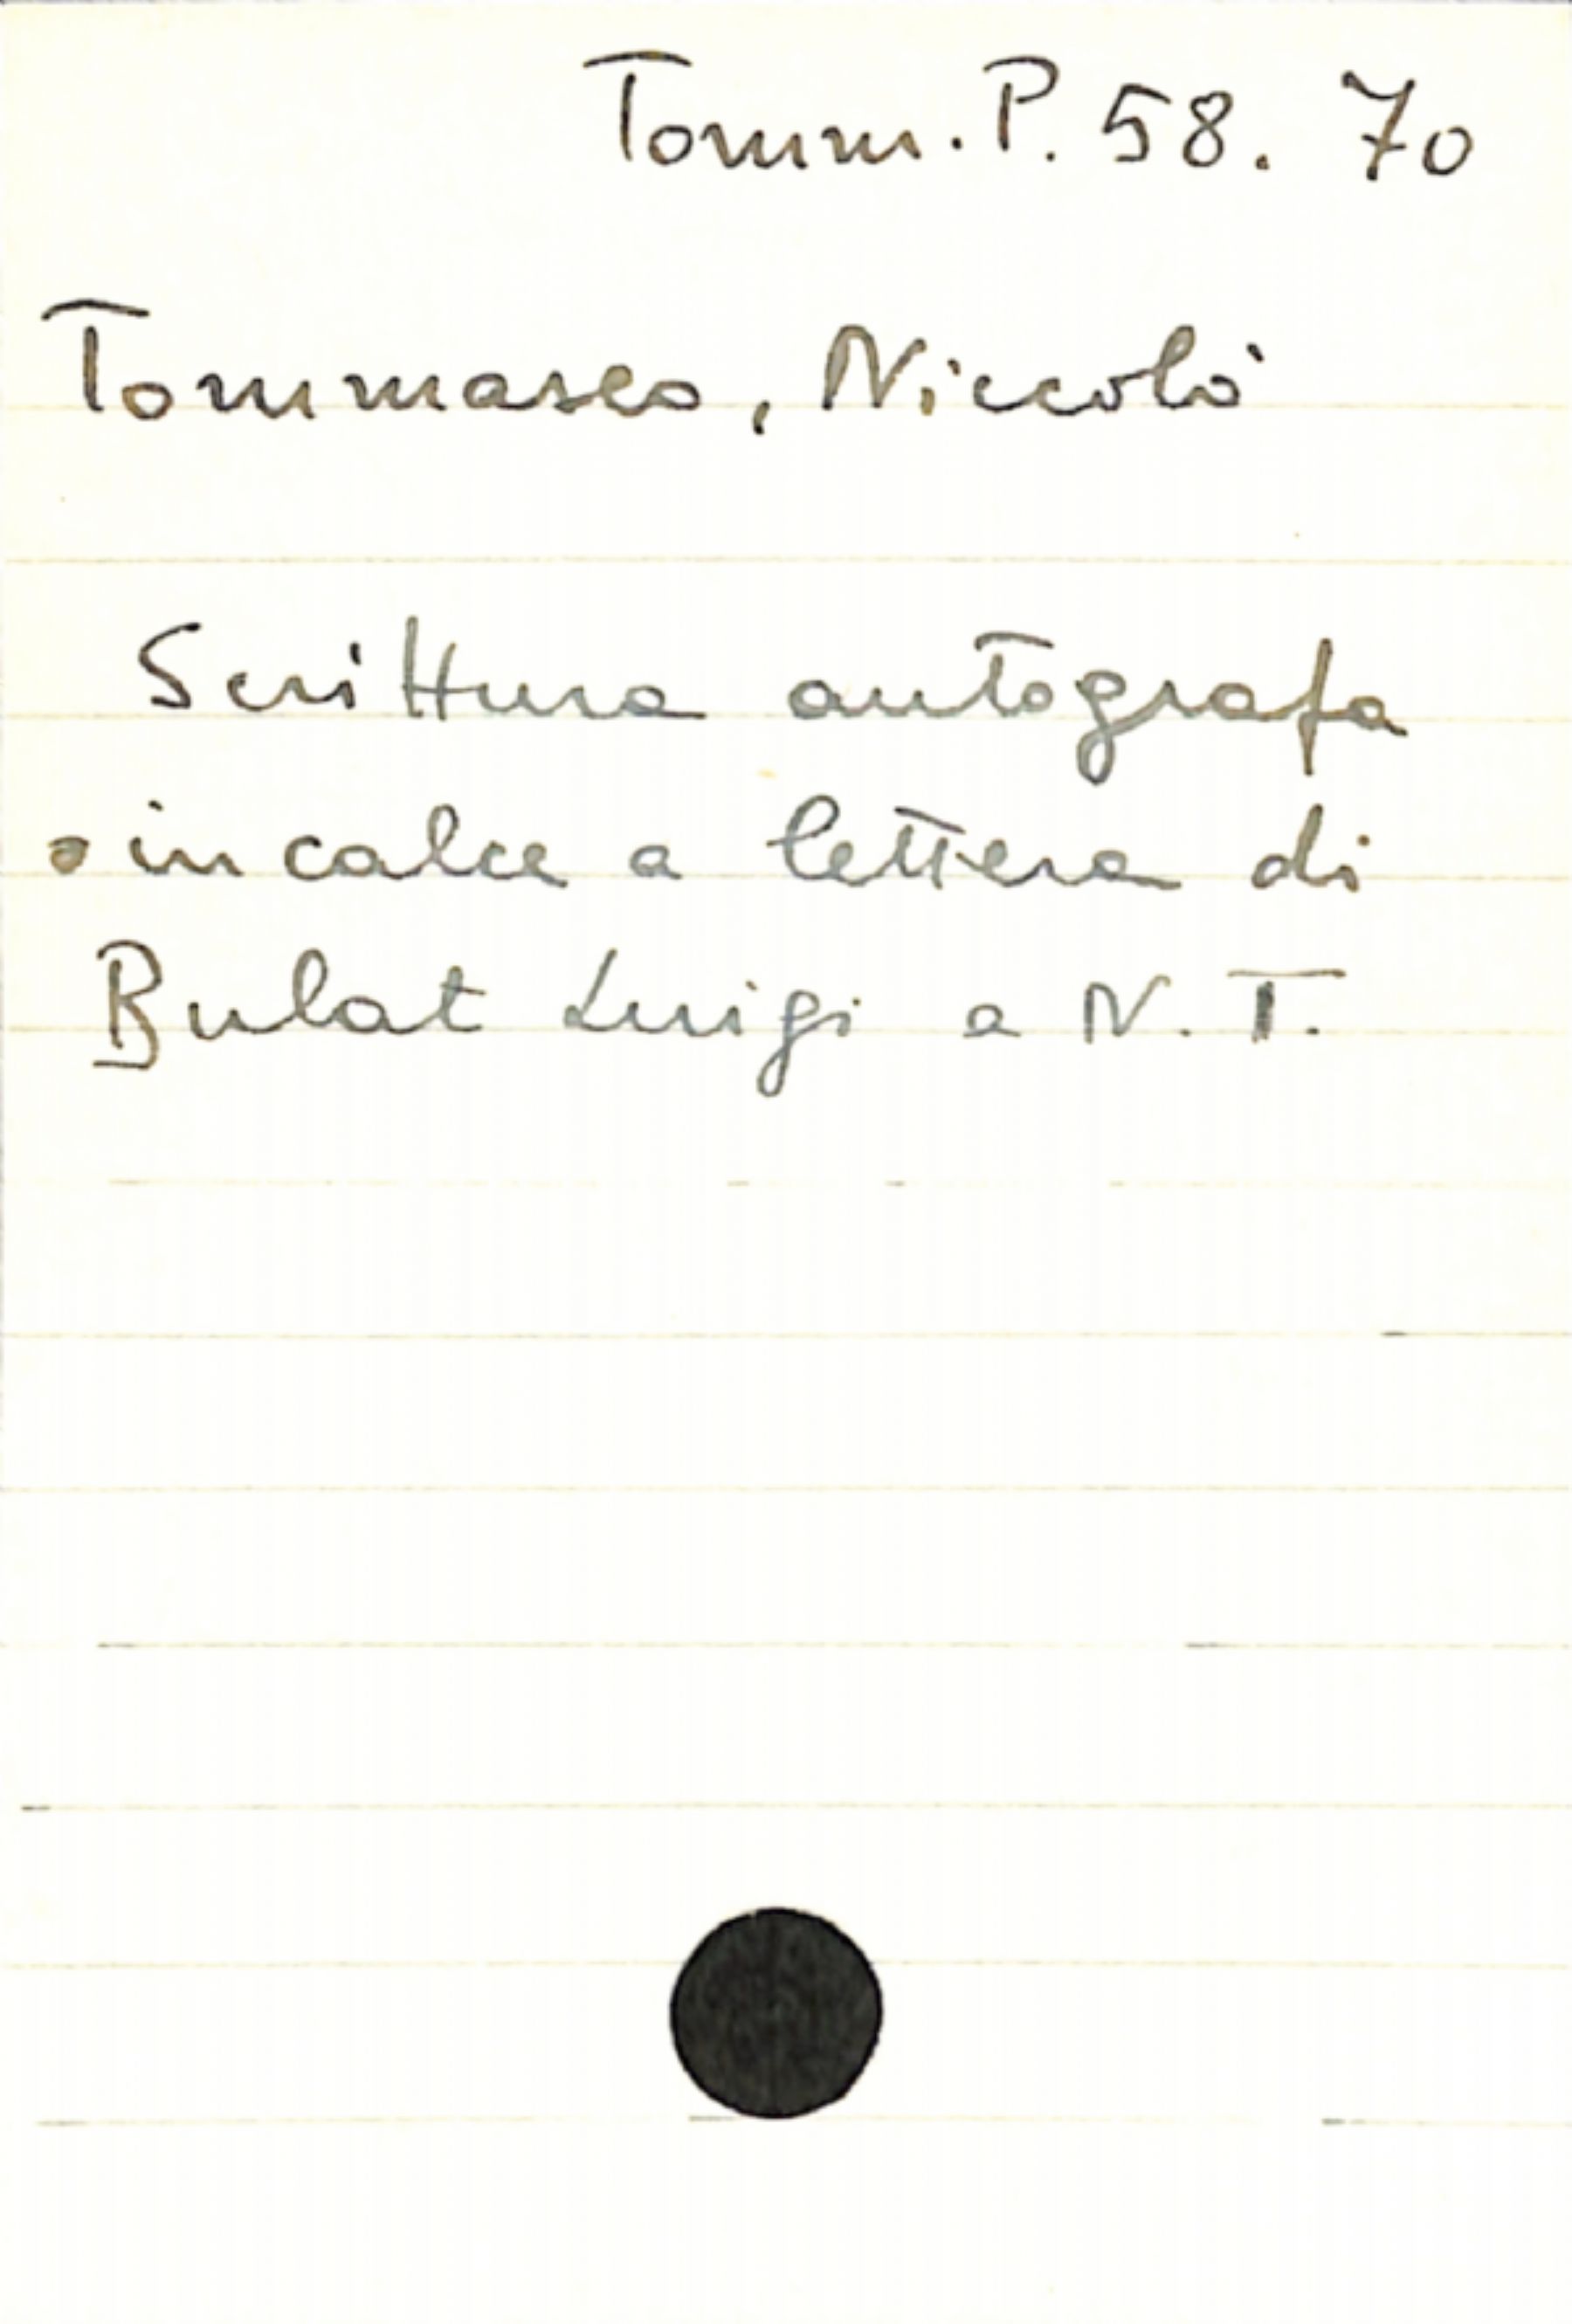 Tomm. P. 58. 70
Tommaseo, Niccolò
Scrittura autografa
in calce a lettera di
Bulat Luigi a N. T.